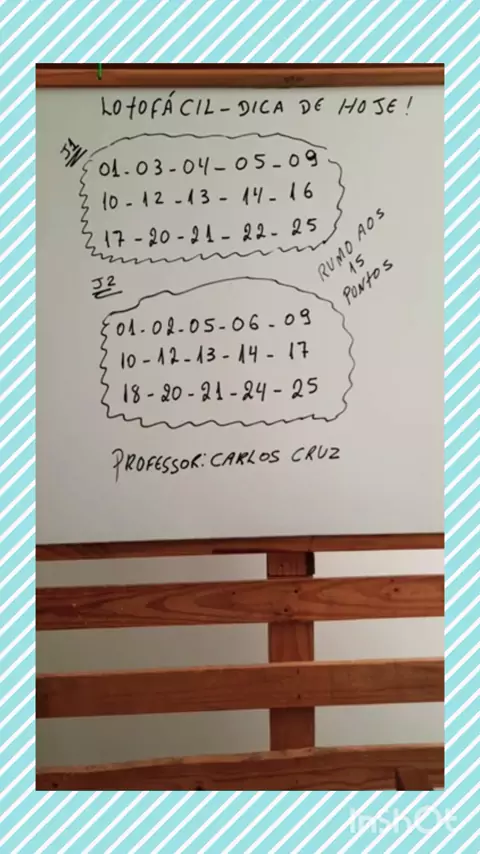 LOTOFÁCIL - DICA DE HOJE!
J1
01-03-04-05-09
10-12-13-14-16
17-20-21-22-25
RUMO AOS
15
PONTOS
J2
01-02-05-06-09
10-12-13-14-17
18-20-21-24-25
PROFESSOR: CARLOS CRUZ
InShOt